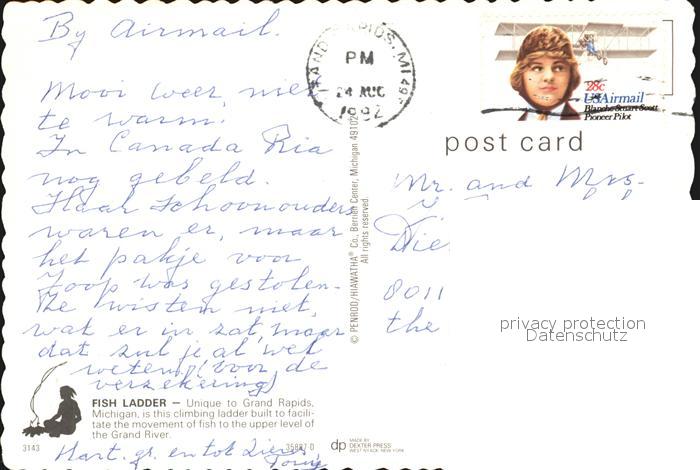 By Airmail.
Mooi weer, niet
te warm.
In Canada Ria
nog gebeld.
Haar schoonouders
waren er, maar
het pakje voor
Joop was gestolen.
Ze wisten niet,
wat er in zat, maar
dat zul je al wel
weten (voor de
verzekering)
Hart. gr. en tot ziens,
FISH LADDER — Unique to Grand Rapids,
Michigan, is this climbing ladder built to facili-
tate the movement of fish to the upper level of
the Grand River.
3143
35887-D
© PENROD/HIAWATHA® Co., Berrien Center, Michigan 49102
All rights reserved.
dp MADE BY
DEXTER PRESS
WEST NYACK, NEW YORK
GRAND RAPIDS, MI 49
PM
24 AUG
28c
USAirmail
Blanche Stuart Scott
Pioneer Pilot
post card
Mr. and Mrs.
Die
8011
the
privacy protection
Datenschutz